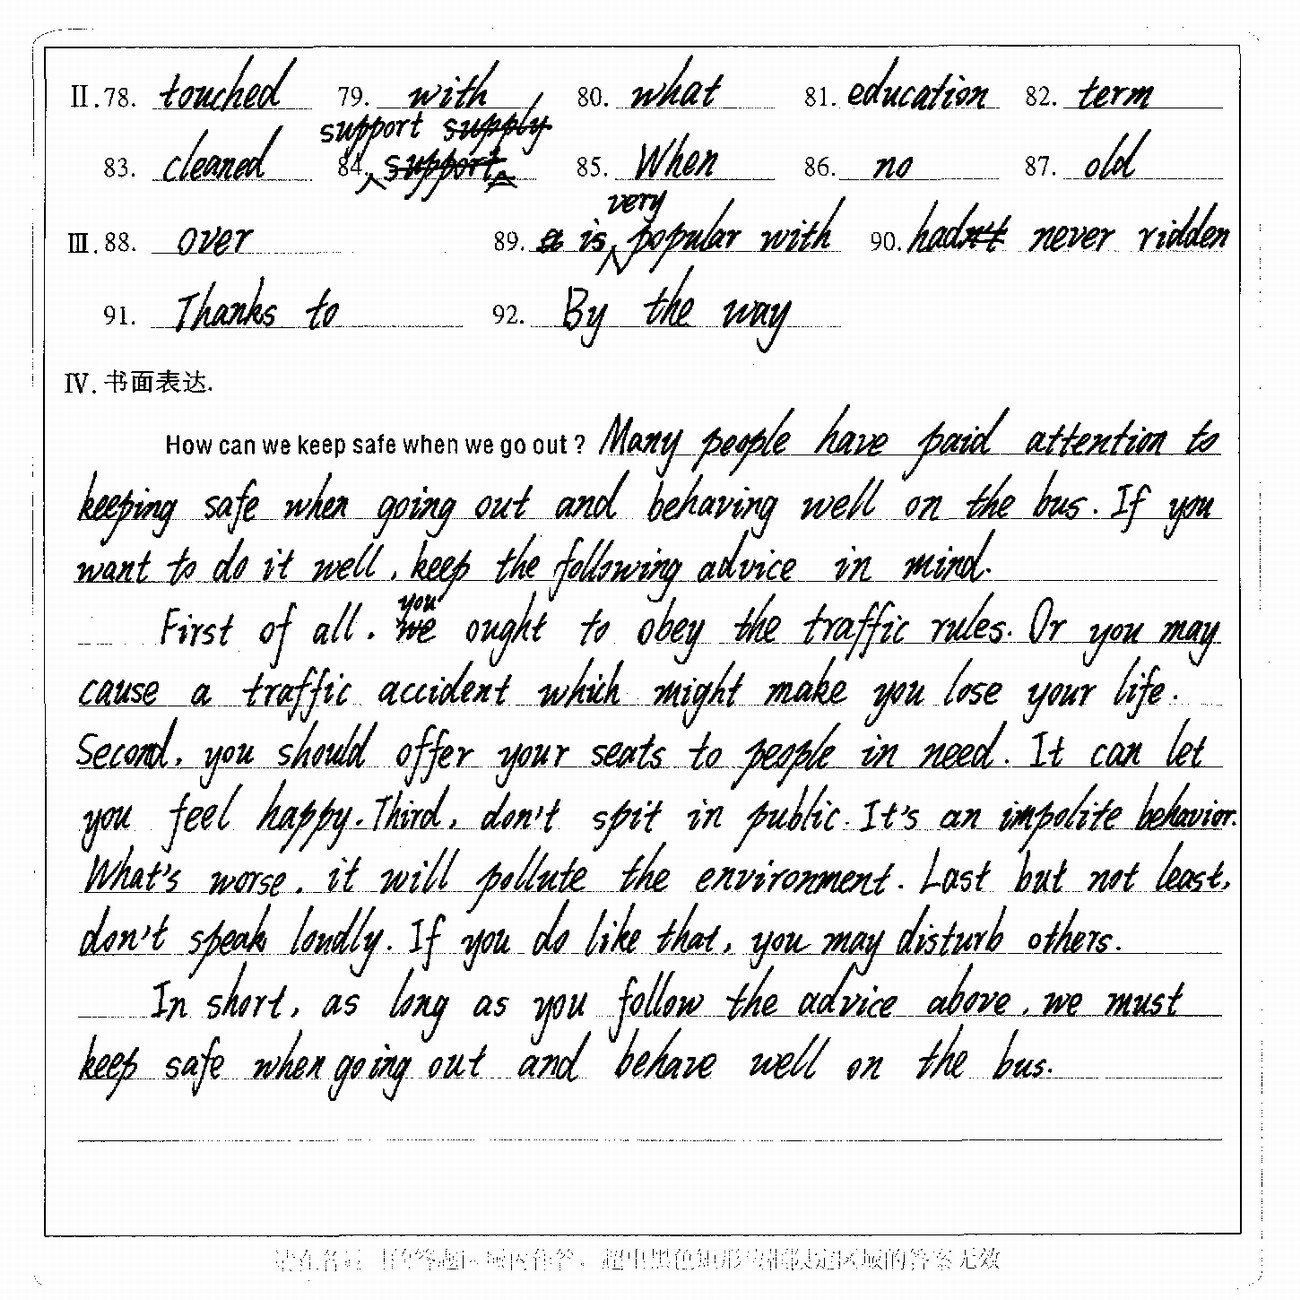 II.78. touched 79. with 80. what 81. education 82. term
support supply
83. cleaned 84. support 85. When 86. no 87. old
very
III.88. over 89. is popular with 90. hadn't never ridden
91. Thanks to 92. By the way
IV. 书面表达.
How can we keep safe when we go out? Many people have paid attention to
keeping safe when going out and behaving well on the bus. If you
want to do it well, keep the following advice in mind.
you
First of all, we ought to obey the traffic rules. Or you may
cause a traffic accident which might make you lose your life.
Second, you should offer your seats to people in need. It can let
you feel happy. Third, don't spit in public. It's an impolite behavior.
What's worse, it will pollute the environment. Last but not least,
don't speak loudly. If you do like that, you may disturb others.
In short, as long as you follow the advice above, we must
keep safe when going out and behave well on the bus.
超出黑色矩形边框限定区域的答案无效